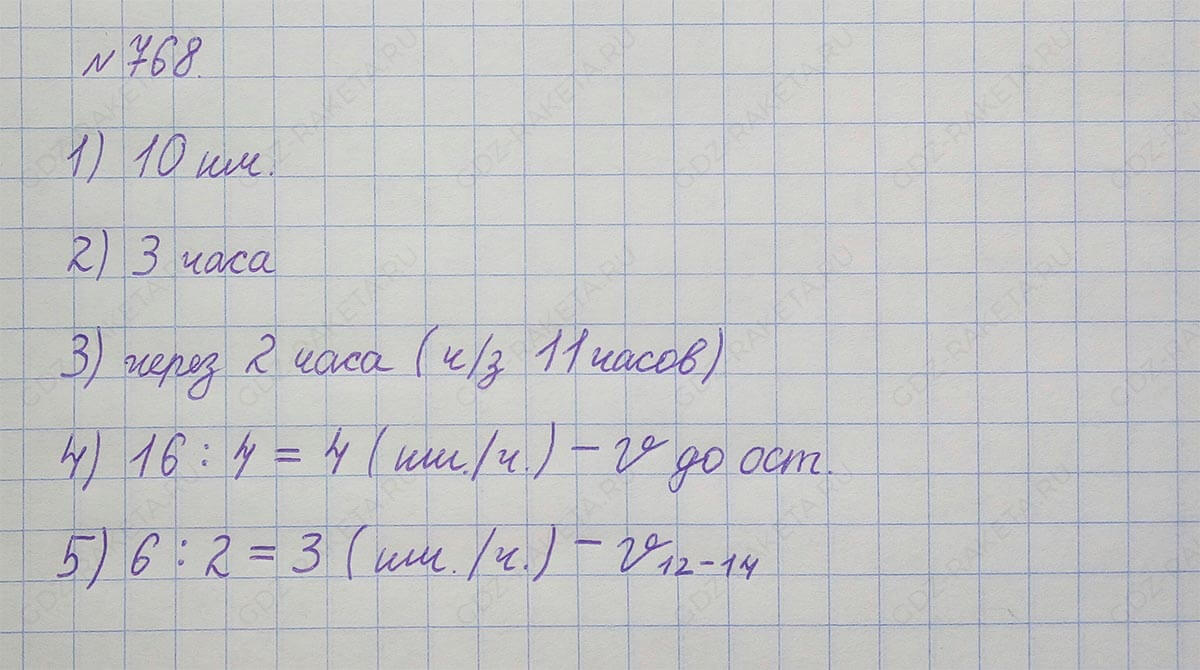 № 768.
1) 10 км.
2) 3 часа
3) через 2 часа (ч/з 11 часов)
4) 16 : 4 = 4 (км./ч.) - v до ост.
5) 6 : 2 = 3 (км./ч.) - v 12-14
GDZ-RAKETA.RU